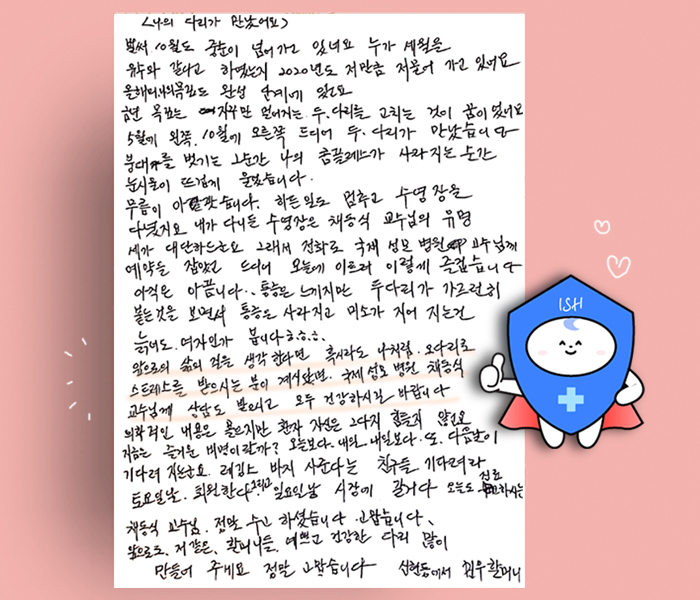 <나의 다리가 만났어요>
벌써 10월도 중순이 넘어가고 있네요 누가 세월을
유수와 같다고 하였는지 2020년도 저만큼 저물어 가고 있어요
올해 나의 목표도 완성 단계에 있고요
금년 목표는 자꾸만 멀어지는 두.다리를 고치는 것이 꿈이었어요
5월에 왼쪽. 10월에 오른쪽 드디어 두.다리가 만났습니다
붕대를 벗기는 그순간 나의 콤플렉스가 사라지는 순간
눈시울이 뜨겁게 울었습니다.
무릎이 아팠습니다. 하든일도 멈추고 수영장을
다녔지요 내가 다니든 수영장은 채동식 교수님의 유명
세가 대단하드군요 그래서 전화로 국제성모병원 교수님께
예약을 잡았고 드디어 오늘에 이르러 이렇게 즐겁습니다
아직은 아픕니다.. 통증은 느끼지만 두다리가 가즈런히
붙는것을 보면서 통증은 사라지고 미소가 지어 지는건
늙어도. 여자인가 봅니다 ㅎㅎㅎ.
앞으로의 삶의 질을 생각한다면 혹시라도 나처럼. 오다리로
스트레스를 받으시는 분이 계시다면. 국제성모병원 채동식
교수님께 상담도 받으시고 모두 건강하시길 바랍니다
의학적인 내용은 모르지만 환자 자신은 그다지 힘들지 않어요
지금은 즐거운 비명이랄까? 오늘보다. 내일. 내일보다. 또. 다음날이
기다려 지는군요. 레깅스 바지 사준다는 친구들 기다려라
토요일날. 퇴원한다 그리고 일요일날 시장에 갈거다 오늘도 진료하시는
채동식 교수님. 정말 수고 하셨습니다 고맙습니다.
앞으로도. 저같은. 할머니들. 예쁘고 건강한 다리 많이
만들어 주세요 정말 고맙습니다 신현동에서 할머니
ISH